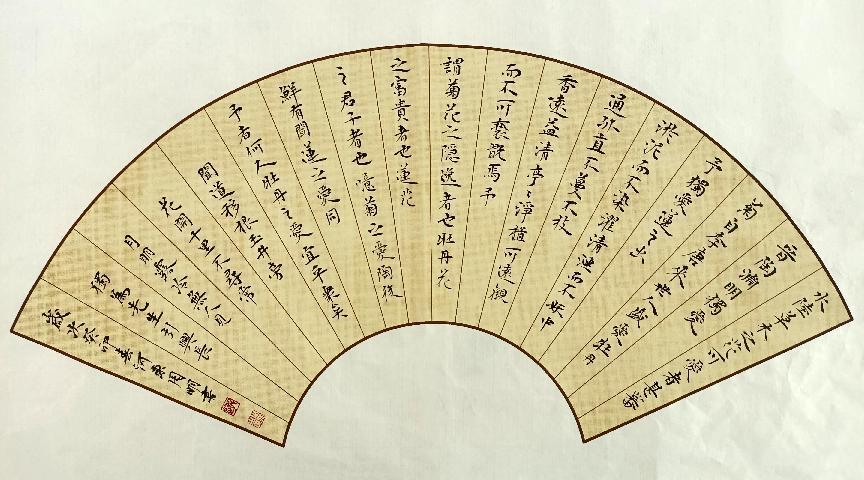 水陸草木之花可愛者甚蕃
晉陶淵明獨愛
菊自李唐來世人盛愛牡丹
予獨愛蓮之出
淤泥而不染濯清漣而不妖中
通外直不蔓不枝
香遠益清亭〻淨植可遠觀
而不可褻翫焉予
謂菊花之隱逸者也牡丹花
之富貴者也蓮花
之君子者也噫菊之愛陶後
鮮有聞蓮之愛同
予者何人牡丹之愛宜乎衆矣
聞道移根玉井旁
花開千里不尋常
月明露冷無人見
獨為先生引興長
歲次癸卯春河東周順